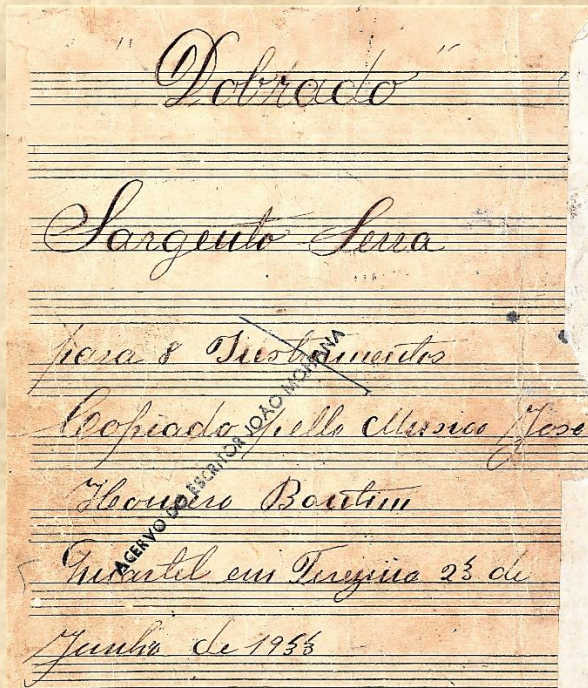 "Dobrado"
Sargento Serra
para 8 Instrumentos
Copiado pello Musico José
Homero
Quartel em Terezina de
Junho de
ACERVO DO ESCRITOR JOÃO MOHANA